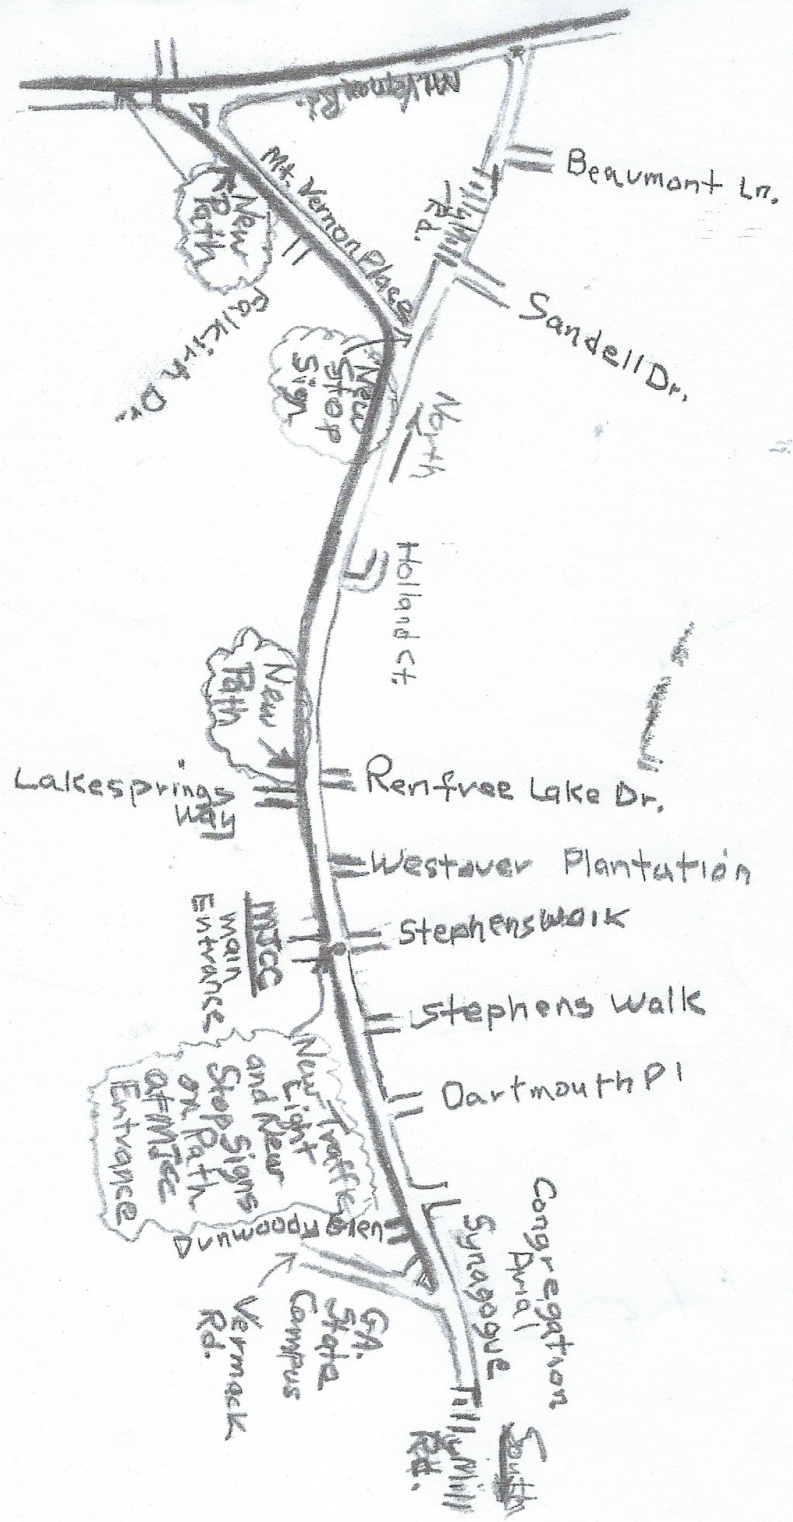 Mt. Vernon Rd.
Beaumont Ln.
Mt. Vernon Place
Tilly Mill
Rd.
New
Path
Sandell Dr.
Falkirk Dr.
New
Stop
Sign
North
Holland Ct.
New
Path
Lakesprings
Way
Renfree Lake Dr.
Westover Plantation
MJCC
main
Entrance
Stephens Walk
Stephens Walk
Dartmouth Pl
New Traffic
Light
and New
Stop Signs
on Path
at MJCC
Entrance
Dunwoody Glen
Congregation
Arial
Synagogue
GA.
State
Campus
Vermack
Rd.
Tilly Mill
Rd.
South